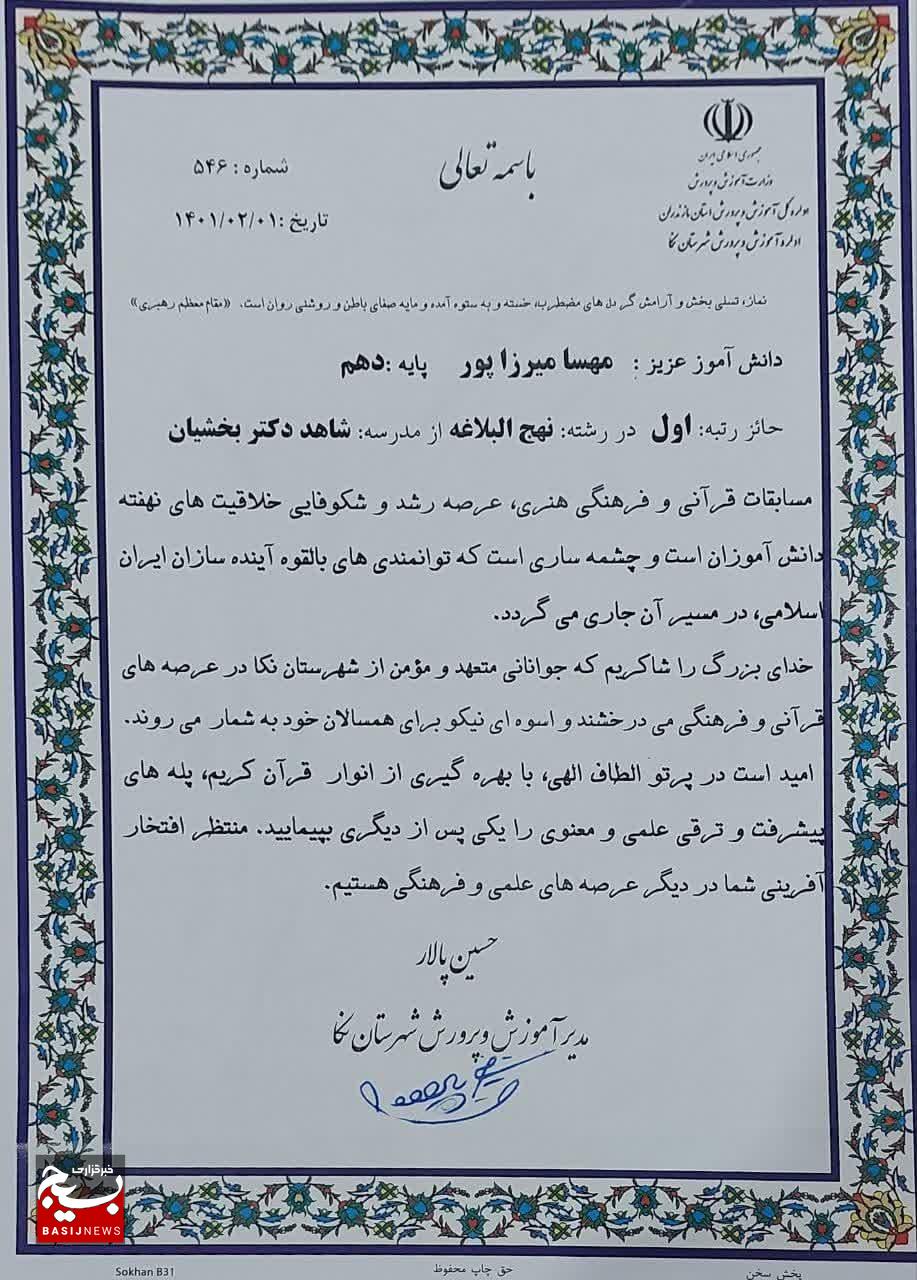 باسمه تعالی
جمهوری اسلامی ایران
وزارت آموزش و پرورش
اداره کل آموزش و پرورش استان مازندران
اداره آموزش و پرورش شهرستان نکا
شماره : ۵۴۶
تاریخ :۱۴۰۱/۰۲/۰۱
نماز، تسلی بخش و آرامش گر دل های مضطرب، خسته و به ستوه آمده و مایه صفای باطن و روشنی روان است. «مقام معظم رهبری»
دانش آموز عزیز : مهسا میرزا پور پایه :دهم
حائز رتبه: اول در رشته: نهج البلاغه از مدرسه: شاهد دکتر بخشیان
مسابقات قرآنی و فرهنگی هنری، عرصه رشد و شکوفایی خلاقیت های نهفته
دانش آموزان است و چشمه ساری است که توانمندی های بالقوه آینده سازان ایران
اسلامی، در مسیر آن جاری می گردد.
خدای بزرگ را شاکریم که جوانانی متعهد و مؤمن از شهرستان نکا در عرصه های
قرآنی و فرهنگی می درخشند و اسوه ای نیکو برای همسالان خود به شمار می روند.
امید است در پرتو الطاف الهی، با بهره گیری از انوار قرآن کریم، پله های
پیشرفت و ترقی علمی و معنوی را یکی پس از دیگری بپیمایید. منتظر افتخار
آفرینی شما در دیگر عرصه های علمی و فرهنگی هستیم.
حسین پالار
مدیر آموزش و پرورش شهرستان نکا
خبرگزاری
بسیج
BASIJNEWS
پخش سخن
حق چاپ محفوظ
Sokhan B31